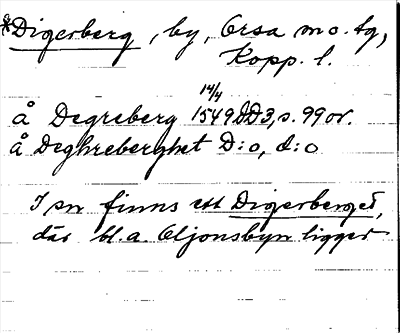 *Digerberg, by, Orsa m o. tg,
Kopp. l.
14/4
å Degreberg 1549 DD3, s. 99 or.
å Deghreberghet D:o, d:o
I sn finns ett Digerberget,
där bl.a. Oljonsbyn ligger